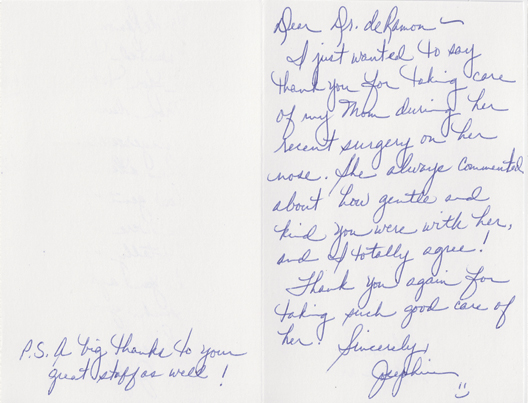 Dear Dr. deRamon –
I just wanted to say
thank you for taking care
of my Mom during her
recent surgery on her
nose. She always commented
about how gentle and
kind you were with her,
and I totally agree!
Thank you again for
taking such good care of
her! Sincerely,
Josephine
P.S. A big thanks to your
great staff as well!